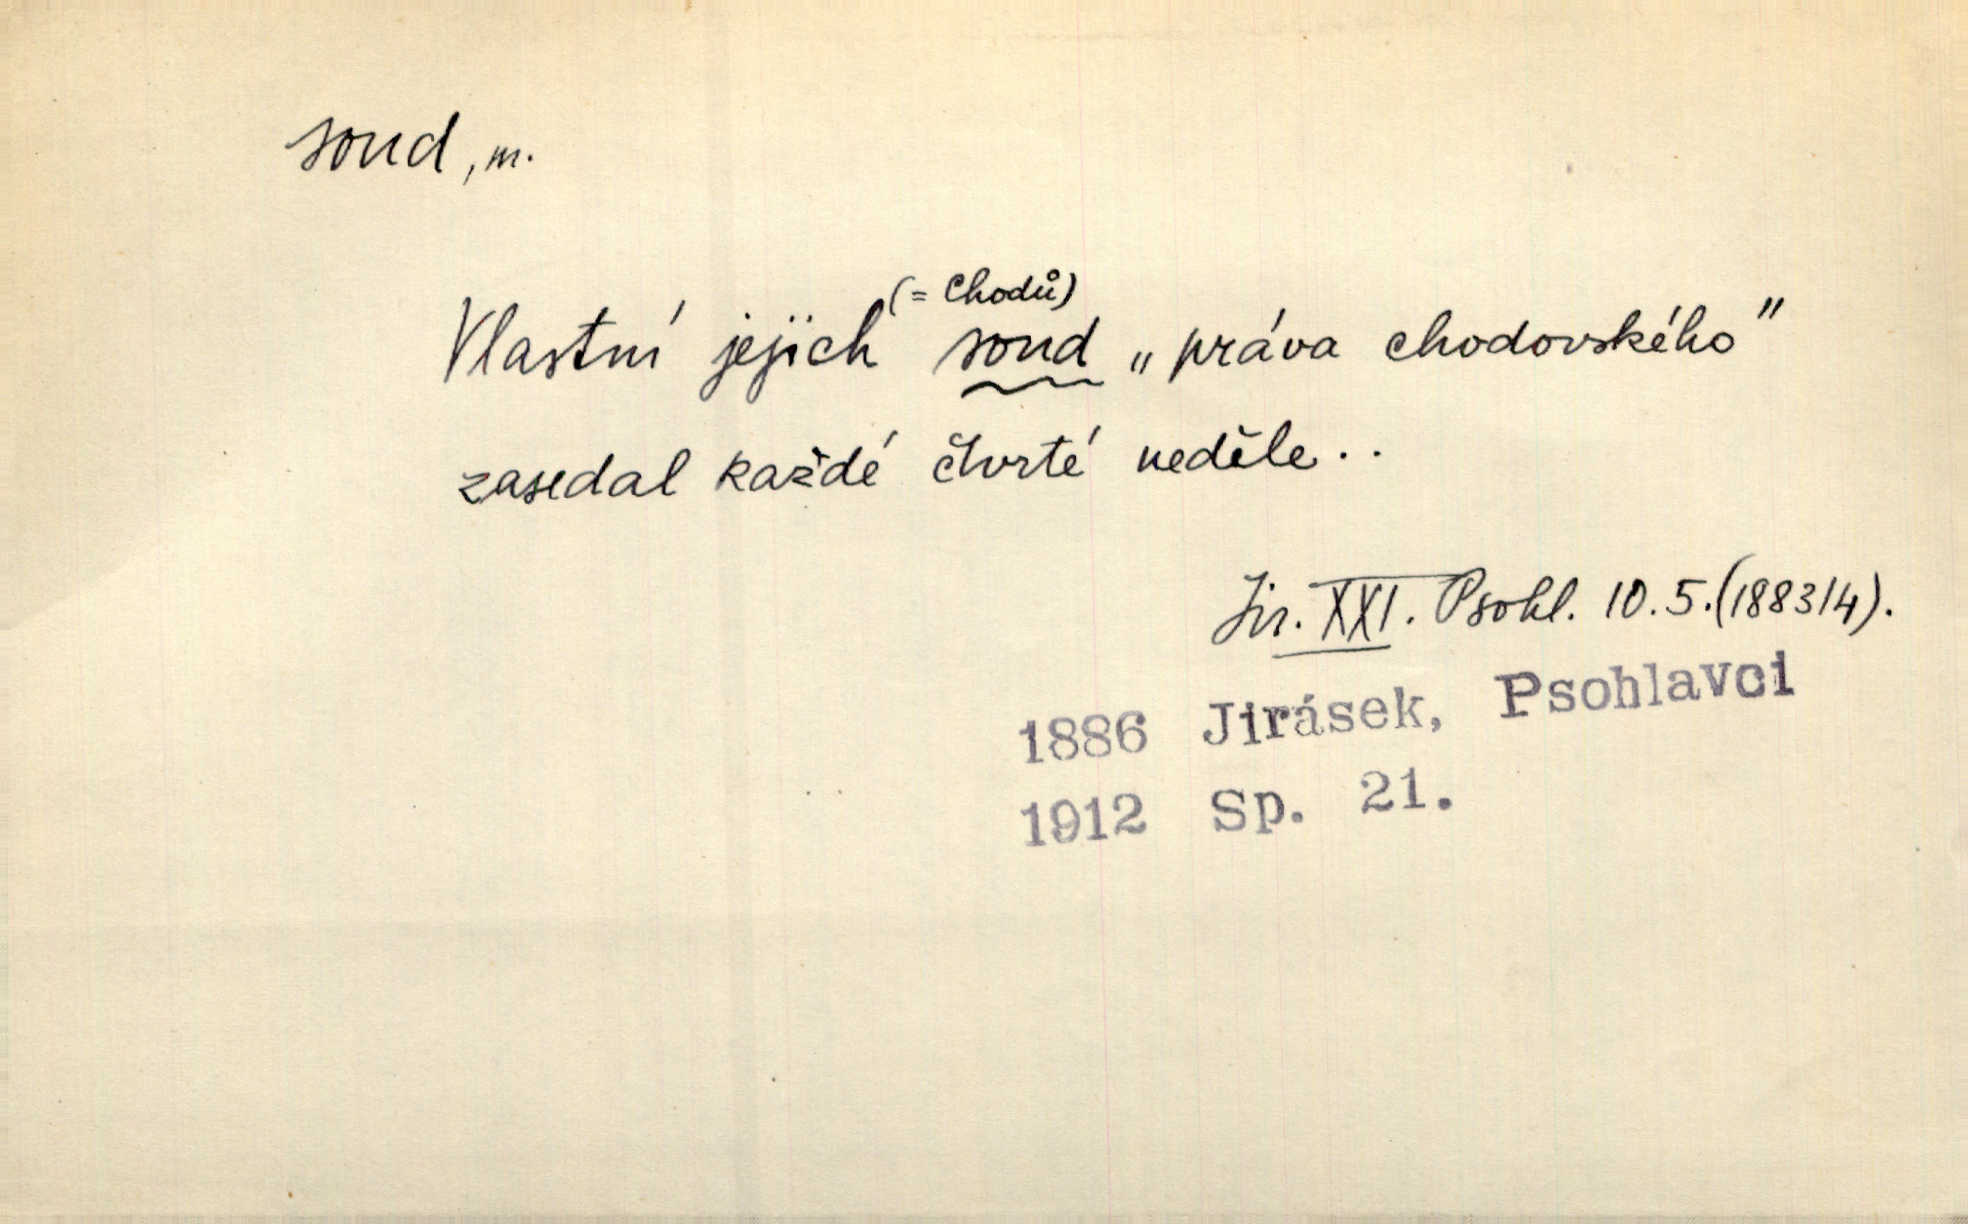 soud, m.
Vlastní jejich (= Chodů) soud „práva chodovského"
zasedal každé čtvrté neděle..
Jir. XXI. Psohl. 10.5.(1883/4).
1886 Jirásek, Psohlavci
1912 Sp. 21.